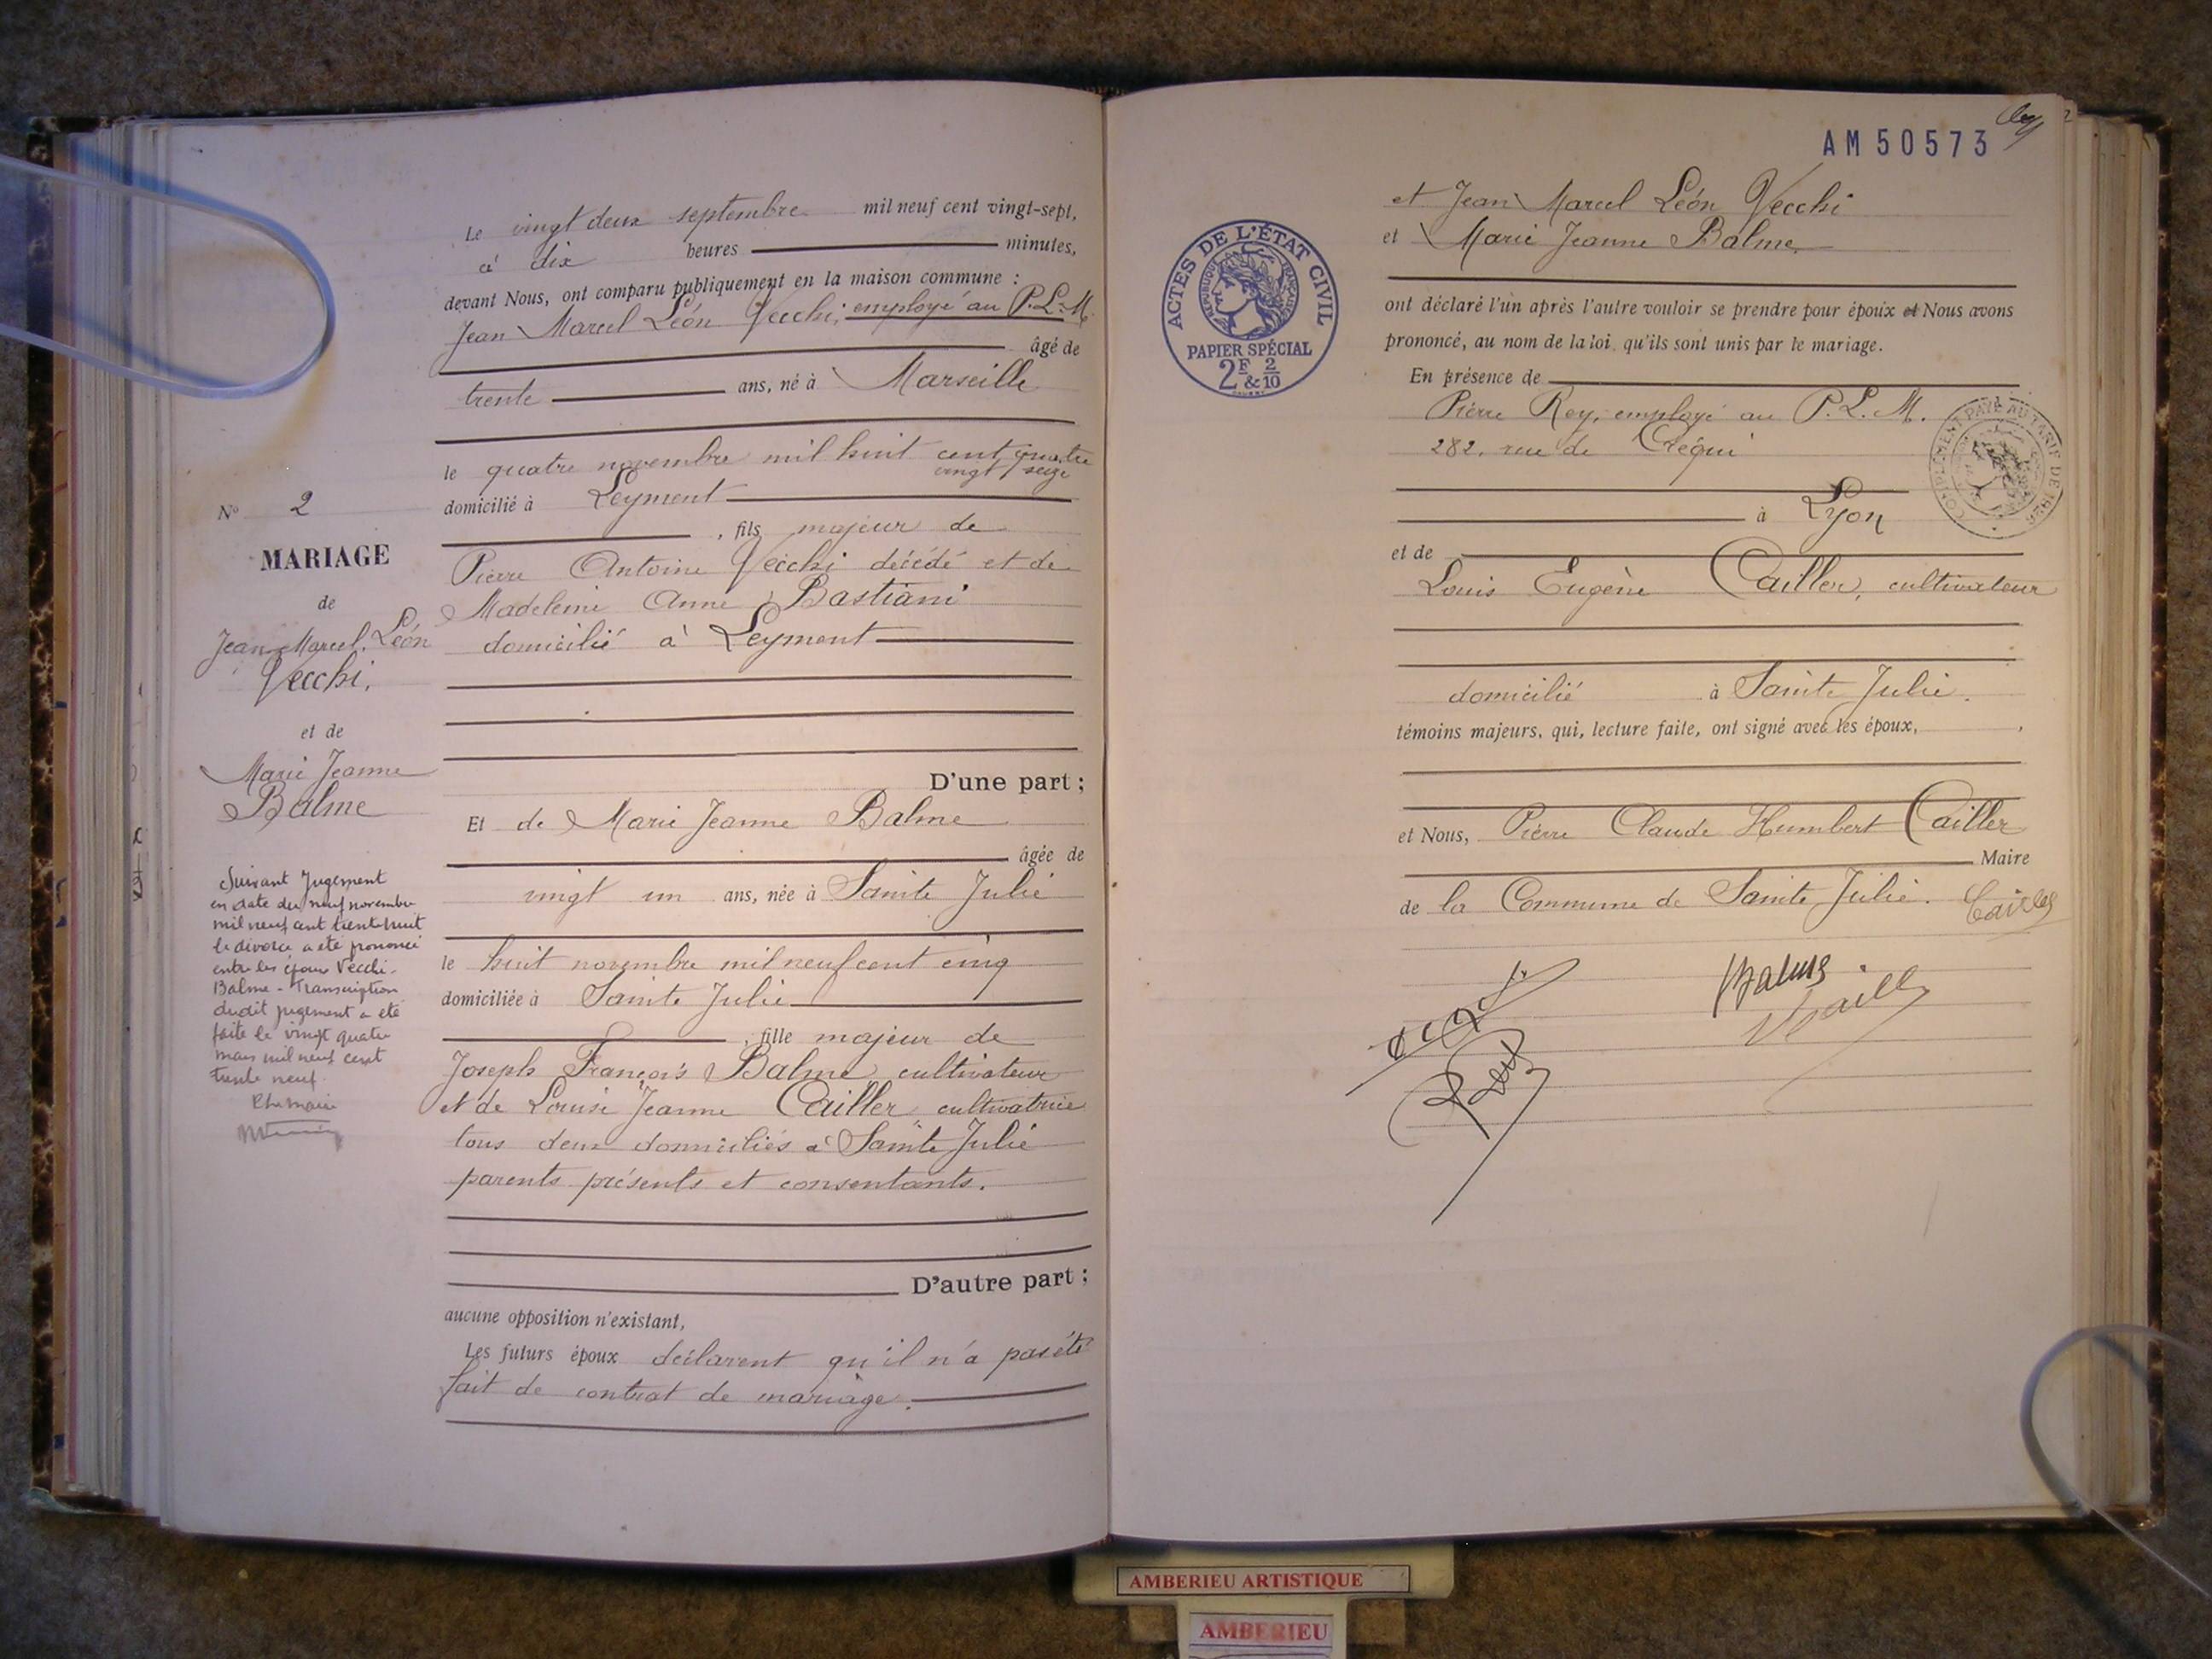 Le vingt deux septembre mil neuf cent vingt-sept,
à dix heures minutes,
devant Nous, ont comparu publiquement en la maison commune :
Jean Marcel Léon Vecchi, employé au P.L.M.
âgé de
trente ans, né à Marseille
le quatre novembre mil huit cent quatre
vingt seize
domicilié à Leyment
, fils majeur de
Pierre Antoine Vecchi décédé et de
Madeleine Anne Bastiani
domicilié à Leyment
D'une part ;
Et de Marie Jeanne Balme
âgée de
vingt un ans, née à Sainte Julie
le huit novembre mil neuf cent cinq
domiciliée à Sainte Julie
, fille majeur de
Joseph François Balme cultivateur
et de Louise Jeanne Cailler, cultivatrice
tous deux domiciliés à Sainte Julie
parents présents et consentants.
D'autre part ;
aucune opposition n'existant,
Les futurs époux déclarent qu'il n'a pas été
fait de contrat de mariage.
N° 2
MARIAGE
de
Jean Marcel Léon
Vecchi,
et de
Marie Jeanne
Balme
Suivant Jugement
en date du neuf novembre
mil neuf cent trente huit
le divorce a été prononcé
entre les époux Vecchi-
Balme - Transcription
dudit jugement a été
faite le vingt quatre
mars mil neuf cent
trente neuf.
AM 50573
et Jean Marcel Léon Vecchi
et Marie Jeanne Balme
ont déclaré l'un après l'autre vouloir se prendre pour époux et Nous avons
prononcé, au nom de la loi, qu'ils sont unis par le mariage.
En présence de
Pierre Rey, employé au P.L.M.
282, rue de Créqui
à Lyon
et de
Louis Eugène Cailler, cultivateur
domicilié à Sainte Julie.
témoins majeurs, qui, lecture faite, ont signé avec les époux,
et Nous, Pierre Claude Humbert Cailler
Maire
de la Commune de Sainte Julie.
Balme
ACTES DE L'ÉTAT CIVIL
RÉPUBLIQUE FRANÇAISE
PAPIER SPÉCIAL
2F & 2/10
COMPLÉMENT PAYÉ AU TARIF DE 1926
AMBERIEU ARTISTIQUE
AMBERIEU